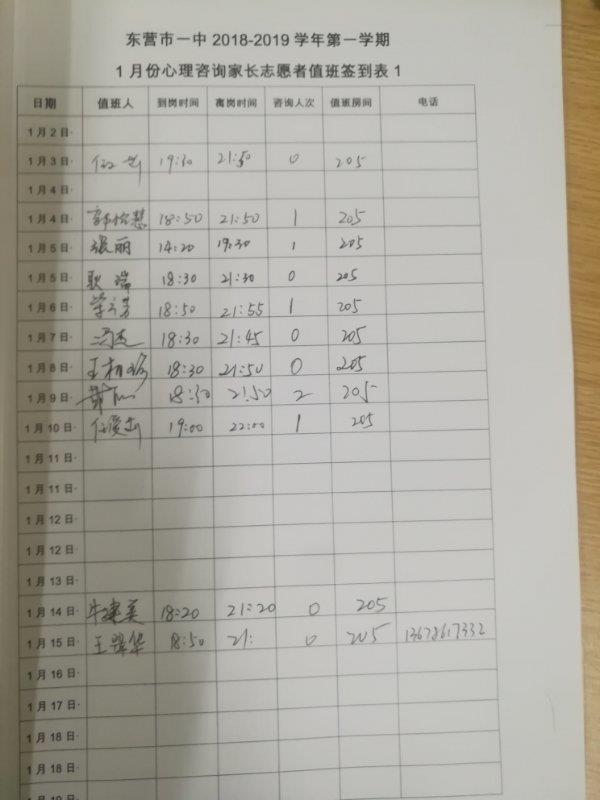 东营市一中 2018-2019 学年第一学期
1 月份心理咨询家长志愿者值班签到表 1
日期 值班人 到岗时间 离岗时间 咨询人次 值班房间 电话
1 月 2 日
1 月 3 日 19:30 21:50 0 205
1 月 4 日
1 月 4 日 18:50 21:50 1 205
1 月 5 日 张丽 14:20 19:30 1 205
1 月 5 日 耿瑞 18:30 21:30 0 205
1 月 6 日 18:50 21:55 1 205
1 月 7 日 冯杰 18:30 21:45 0 205
1 月 8 日 王 18:30 21:50 0 205
1 月 9 日 18:30 21:50 2 205
1 月 10 日 任 19:00 22:00 1 205
1 月 11 日
1 月 11 日
1 月 12 日
1 月 12 日
1 月 13 日
1 月 14 日 牛建英 18:20 21:20 0 205
1 月 15 日 王翠华 18:50 21: 0 205 13678617332
1 月 16 日
1 月 17 日
1 月 18 日
1 月 18 日